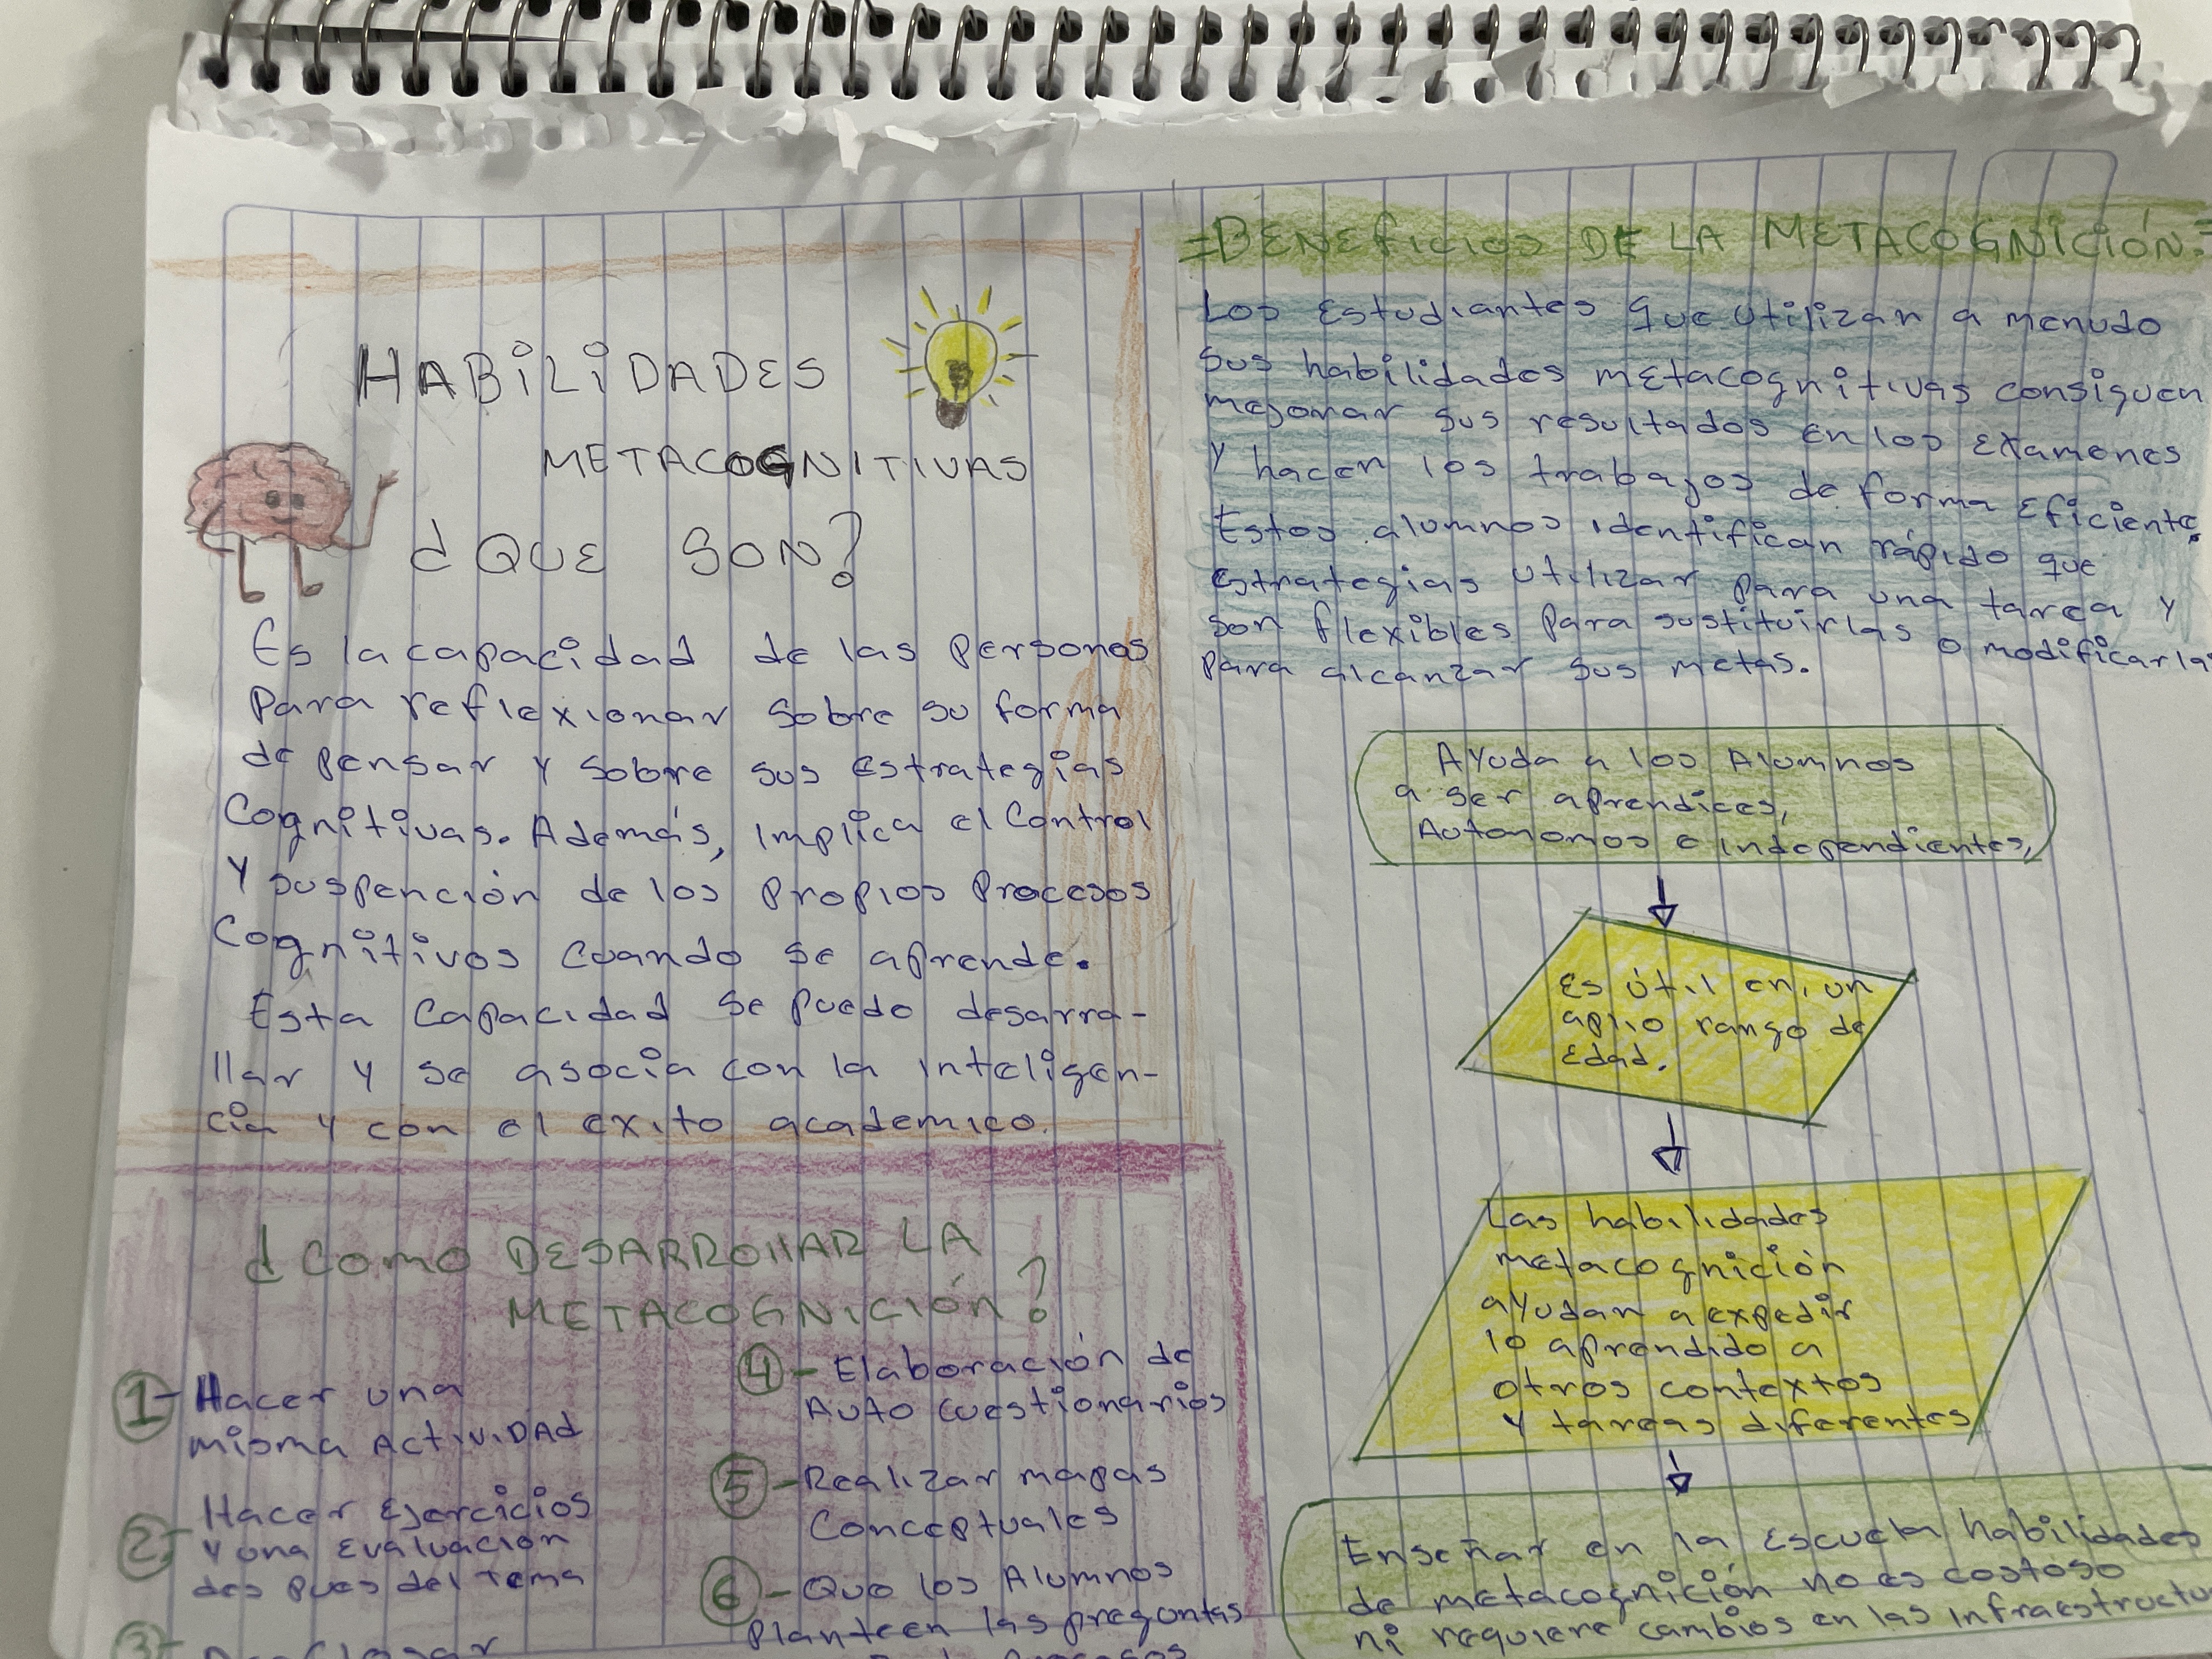 HABILIDADES
METACOGNITIVAS
¿QUE SON?
Es la capacidad de las Personas
Para reflexionar sobre su forma
de pensar y sobre sus estrategias
Cognitivas. Además, implica el Control
y suspención de los propios Procesos
Cognitivos cuando se aprende.
Esta Capacidad se puede desarra-
llar y se asocia con la inteligen-
cia y con el exito academico.
¿COMO DESARROllAR LA
METACOGNICIÓN?
1- Hacer una
misma ACTIVIDAD
2- Hacer Ejercicios
y una Evaluación
des pues del tema
3-
4- Elaboración de
Auto cuestionarios
5- Realizar mapas
Conceptuales
6- Que los Alumnos
Planteen las preguntas
=BENEFICIOS DE LA METACOGNICIÓN=
Los Estudiantes que utilizan a menudo
sus habilidades metacognitivas consiguen
mejorar sus resultados en los Examenes
y hacen los trabajos de forma Eficiente.
Estos alumnos identifican rápido que
Estrategias utilizar para una tarea y
son flexibles para sustituirlas o modificarlas
para alcanzar sus metas.
Ayuda a los Alumnos
a ser aprendices,
Autonomos e independientes,
Es útil en un
aplio rango de
Edad.
Las habilidades
metacognición
ayudan a expedir
lo aprendido a
otros contextos
y tareas diferentes
Enseñar en la Escuela habilidades
de metacognición no es costoso
ni requiere cambios en las infraestructu